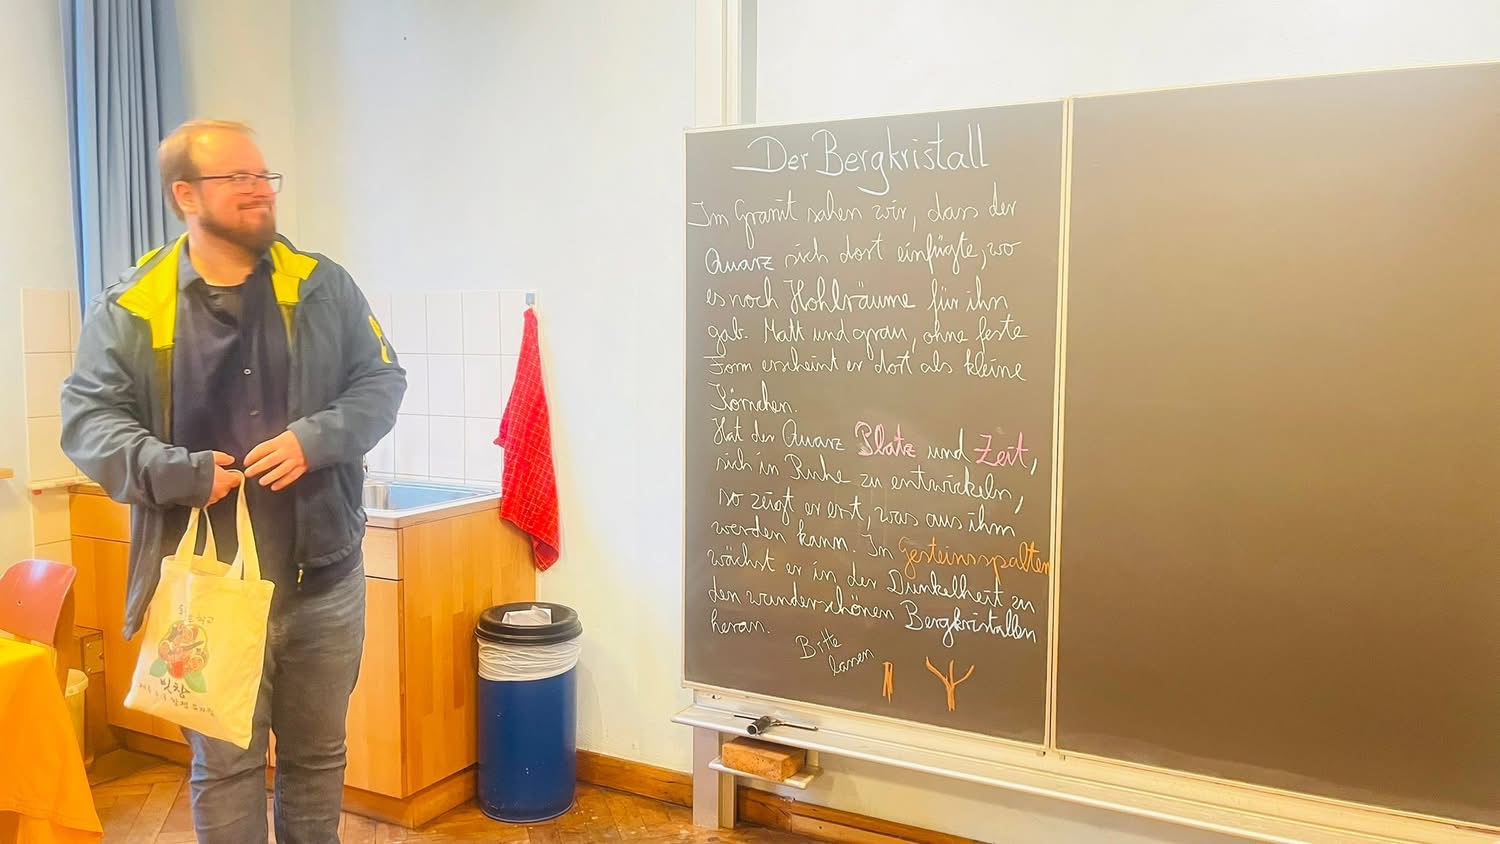 Der Bergkristall
Im Granit sahen wir, dass der
Quarz sich dort einfügte, wo
es noch Hohlräume für ihn
gab. Matt und grau, ohne feste
Form erscheint er dort als kleine
Körnchen.
Hat der Quarz Platz und Zeit,
sich in Ruhe zu entwickeln,
so zeigt er erst, was aus ihm
werden kann. In Gesteinsspalten
wächst er in der Dunkelheit zu
den wunderschönen Bergkristallen
heran.
Bitte
lassen